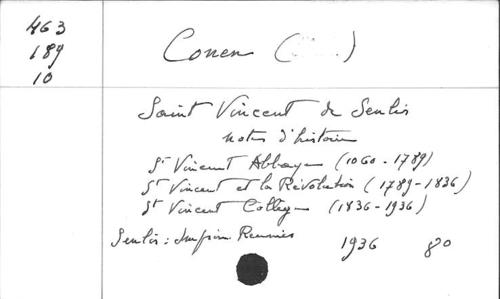 463
189
10
Conen ( )
Saint Vincent de Senlis
notes d'histoire
St Vincent Abbaye (1060-1789)
St Vincent et la Révolution (1789-1836)
St Vincent Collège (1836-1936)
Senlis: Imprim. Réunies 1936 8o